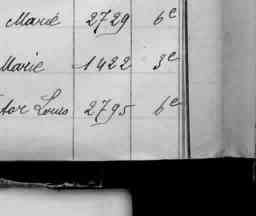 Marie 2729 6e
Marie 1422 3e
tor Louis 2795 6e